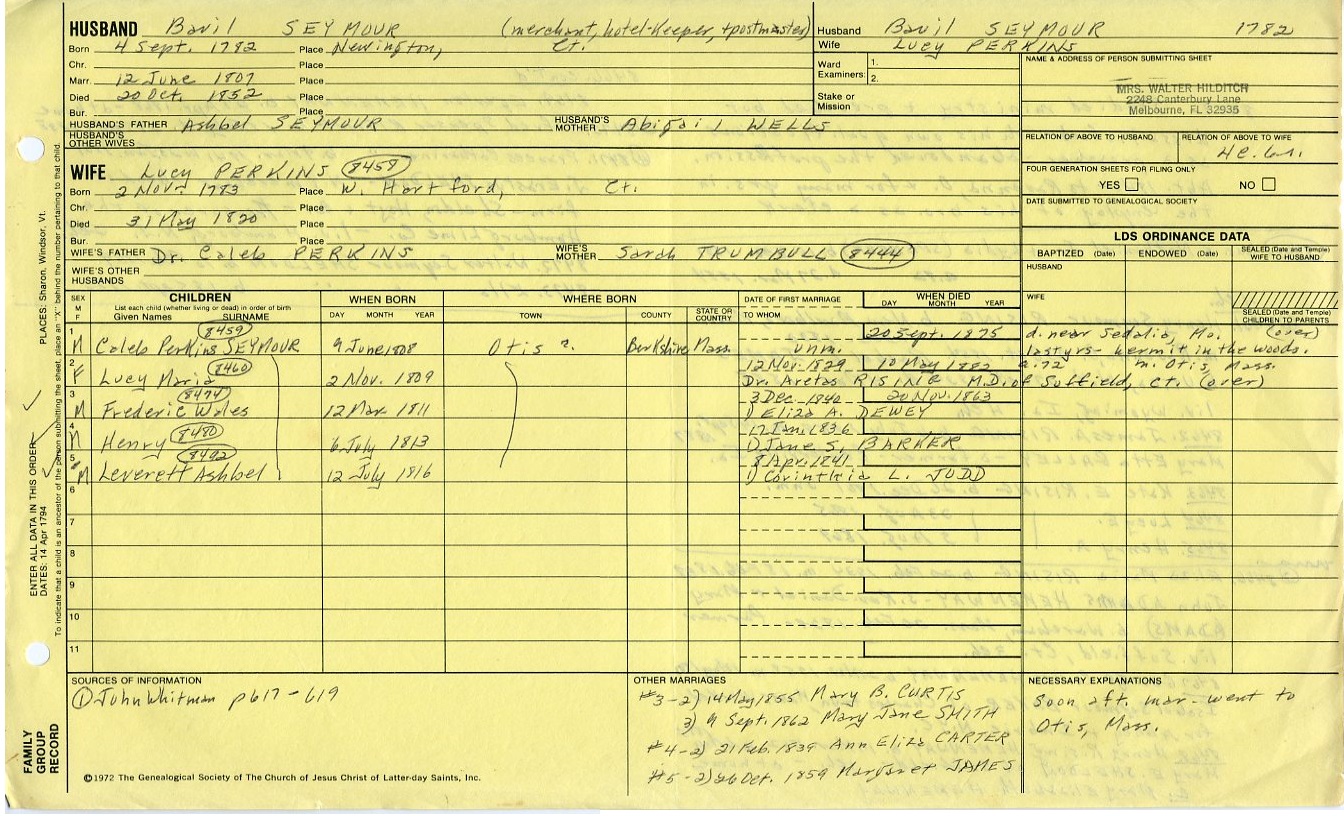 HUSBAND Bavil SEYMOUR (merchant, hotel-keeper, + postmaster)
Born 4 Sept. 1782 Place Newington, Ct.
Chr. Place
Marr. 12 June 1807 Place
Died 20 Oct. 1852 Place
Bur. Place
HUSBAND'S FATHER Ashbel SEYMOUR HUSBAND'S MOTHER Abigail WELLS
HUSBAND'S OTHER WIVES
WIFE Lucy PERKINS 8458
Born 2 Nov. 1783 Place W. Hartford, Ct.
Chr. Place
Died 31 May 1820 Place
Bur. Place
WIFE'S FATHER Dr. Caleb PERKINS WIFE'S MOTHER Sarah TRUMBULL 8444
WIFE'S OTHER HUSBANDS
Husband Bavil SEYMOUR 1782
Wife Lucy PERKINS
Ward Examiners: 1. 2.
Stake or Mission
NAME & ADDRESS OF PERSON SUBMITTING SHEET
MRS. WALTER HILDITCH
2248 Canterbury Lane
Melbourne, FL 32935
RELATION OF ABOVE TO HUSBAND RELATION OF ABOVE TO WIFE
FOUR GENERATION SHEETS FOR FILING ONLY
YES NO
DATE SUBMITTED TO GENEALOGICAL SOCIETY
LDS ORDINANCE DATA
BAPTIZED (Date) ENDOWED (Date) SEALED (Date and Temple) WIFE TO HUSBAND
HUSBAND
WIFE
SEALED (Date and Temple) CHILDREN TO PARENTS
SEX M F CHILDREN WHEN BORN WHERE BORN DATE OF FIRST MARRIAGE WHEN DIED
List each child (whether living or dead) in order of birth
Given Names SURNAME DAY MONTH YEAR TOWN COUNTY STATE OR COUNTRY TO WHOM DAY MONTH YEAR
1 8459 20 Sept. 1875 d. near Sedalia, Mo. (over)
M Caleb Perkins SEYMOUR 9 June 1808 Otis ? Berkshire Mass. unm. last yrs- hermit in the woods.
8460 12 Nov. 1829 10 May 1882 a. 72 m. Otis, Mass.
F Lucy Maria 2 Nov. 1809 Dr. Aretas RISING M.D. of Suffield, Ct. (over)
3 8474 3 Dec. 1840 20 Nov. 1863
M Frederic Wales 12 Mar. 1811 1) Eliza A. DEWEY
4 8480 17 Jan. 1836
M Henry 6 July 1813 1) Jane S. BARKER
5 8492 8 Apr. 1841
M Leverett Ashbel 12 July 1816 1) Corinthia L. JUDD
6
7
8
9
10
11
SOURCES OF INFORMATION
① John Whitman p617-619
©1972 The Genealogical Society of The Church of Jesus Christ of Latter-day Saints, Inc.
OTHER MARRIAGES
#3-2) 14 May 1855 Mary B. CURTIS
3) 9 Sept. 1862 Mary Jane SMITH
#4-2) 21 Feb. 1839 Ann Eliza CARTER
#5-2) 26 Oct. 1859 Margaret JAMES
NECESSARY EXPLANATIONS
Soon aft. mar- went to
Otis, Mass.
PLACES: Sharon, Windsor, Vt.
ENTER ALL DATA IN THIS ORDER:
DATES: 14 Apr 1794
To indicate that a child is an ancestor of the person submitting the sheet, place an "X" behind the number pertaining to that child.
FAMILY GROUP RECORD